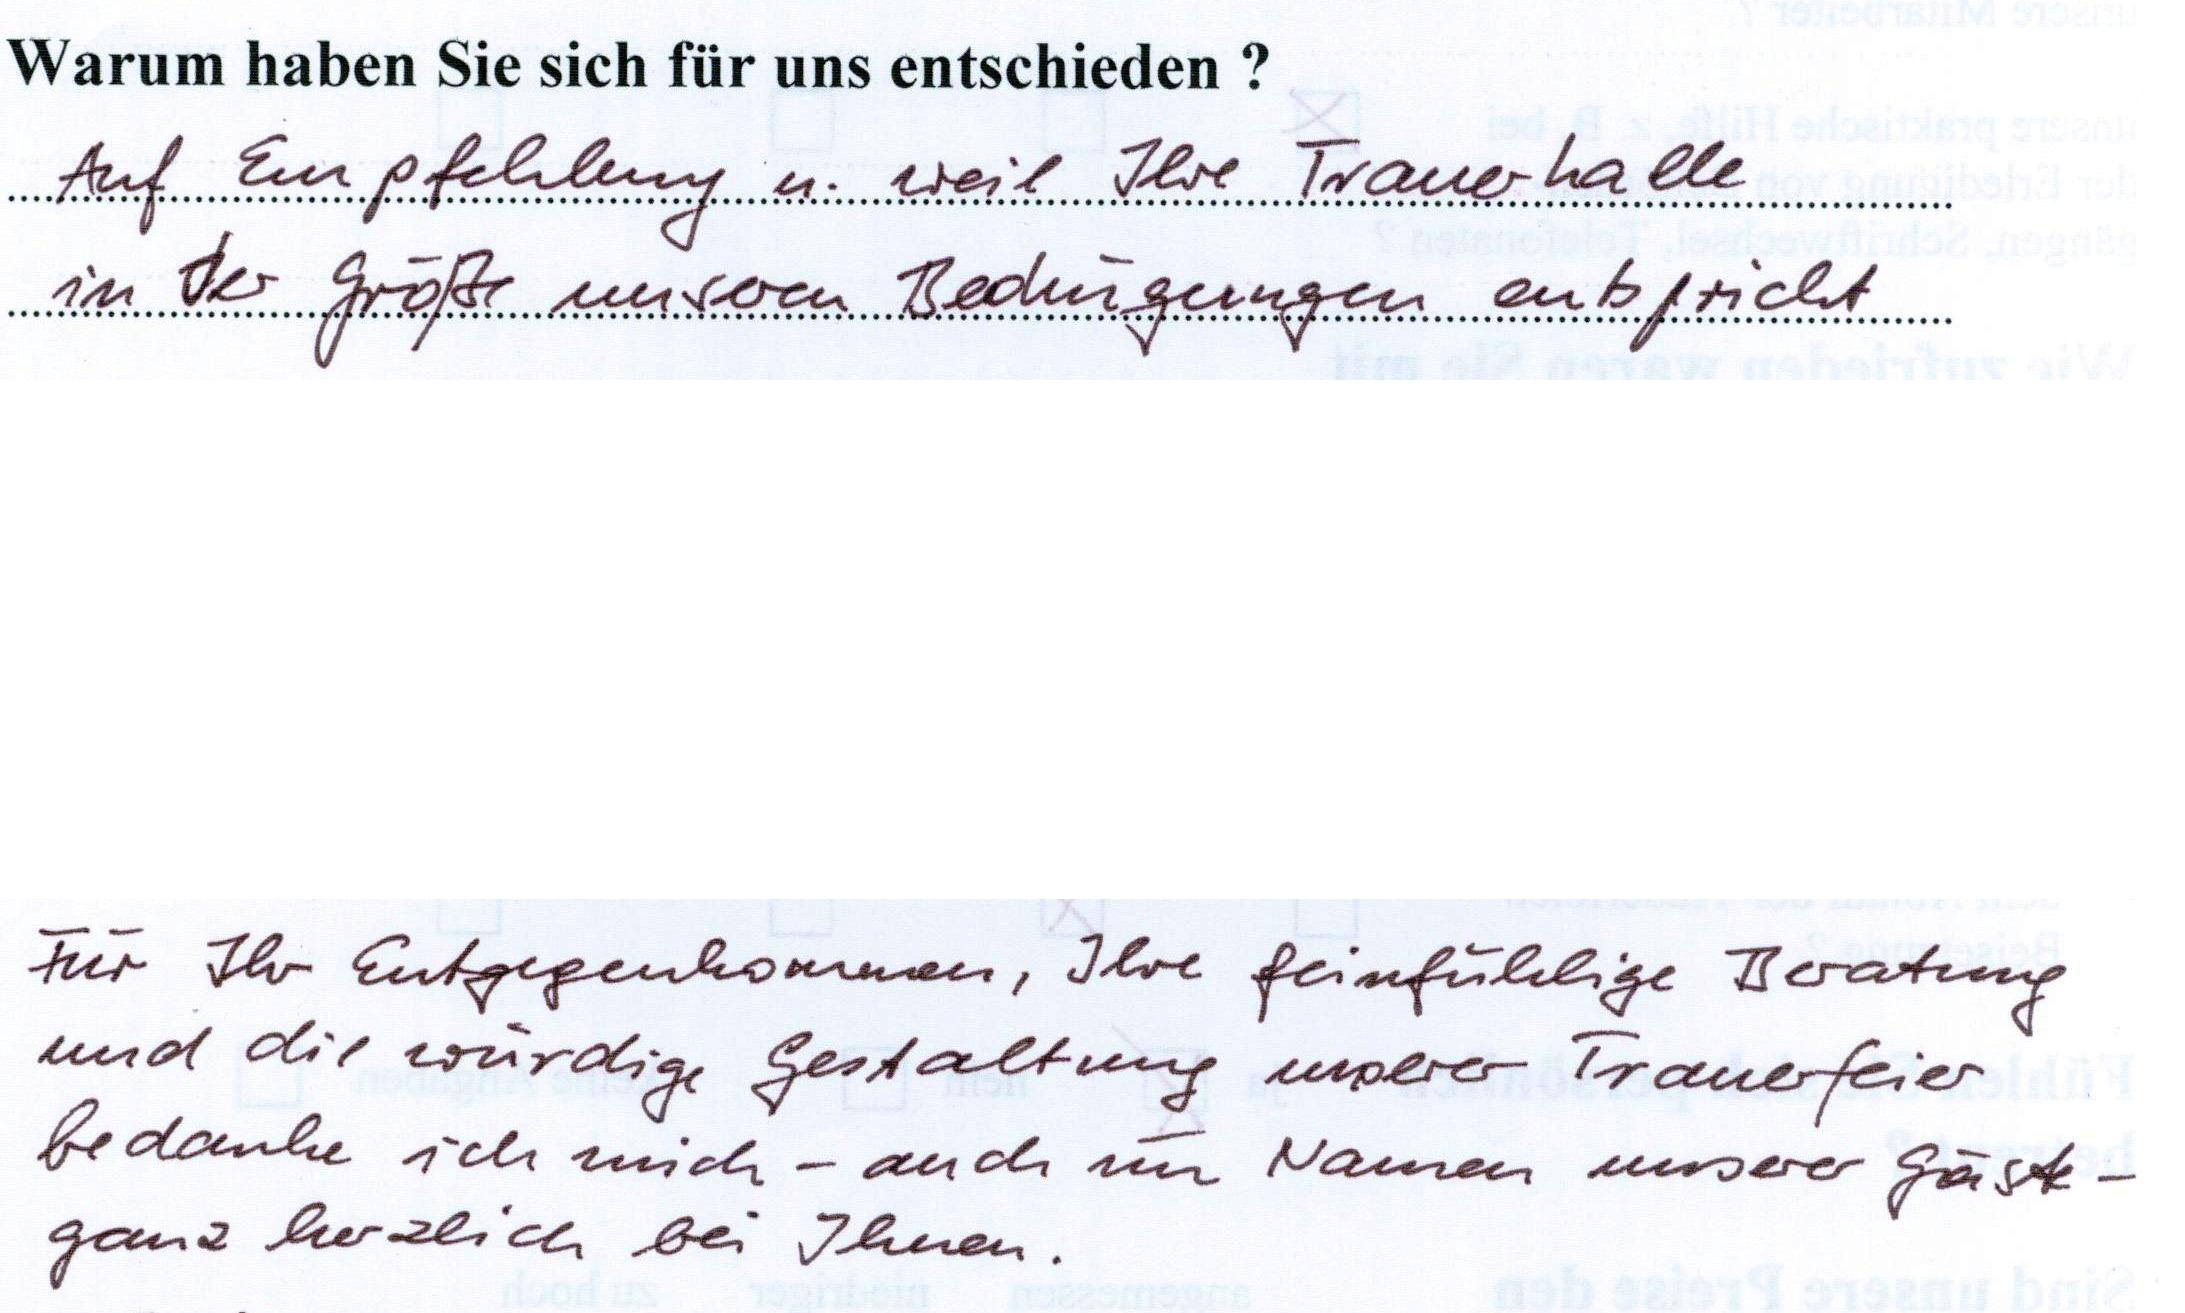 Warum haben Sie sich für uns entschieden ?
Auf Empfehlung u. weil Ihre Trauerhalle
in der Größe unseren Bedingungen entspricht
Für Ihr Entgegenkommen, Ihre feinfühlige Beratung
und die würdige Gestaltung unserer Trauerfeier
bedanke ich mich – auch im Namen unserer Gäste –
ganz herzlich bei Ihnen.